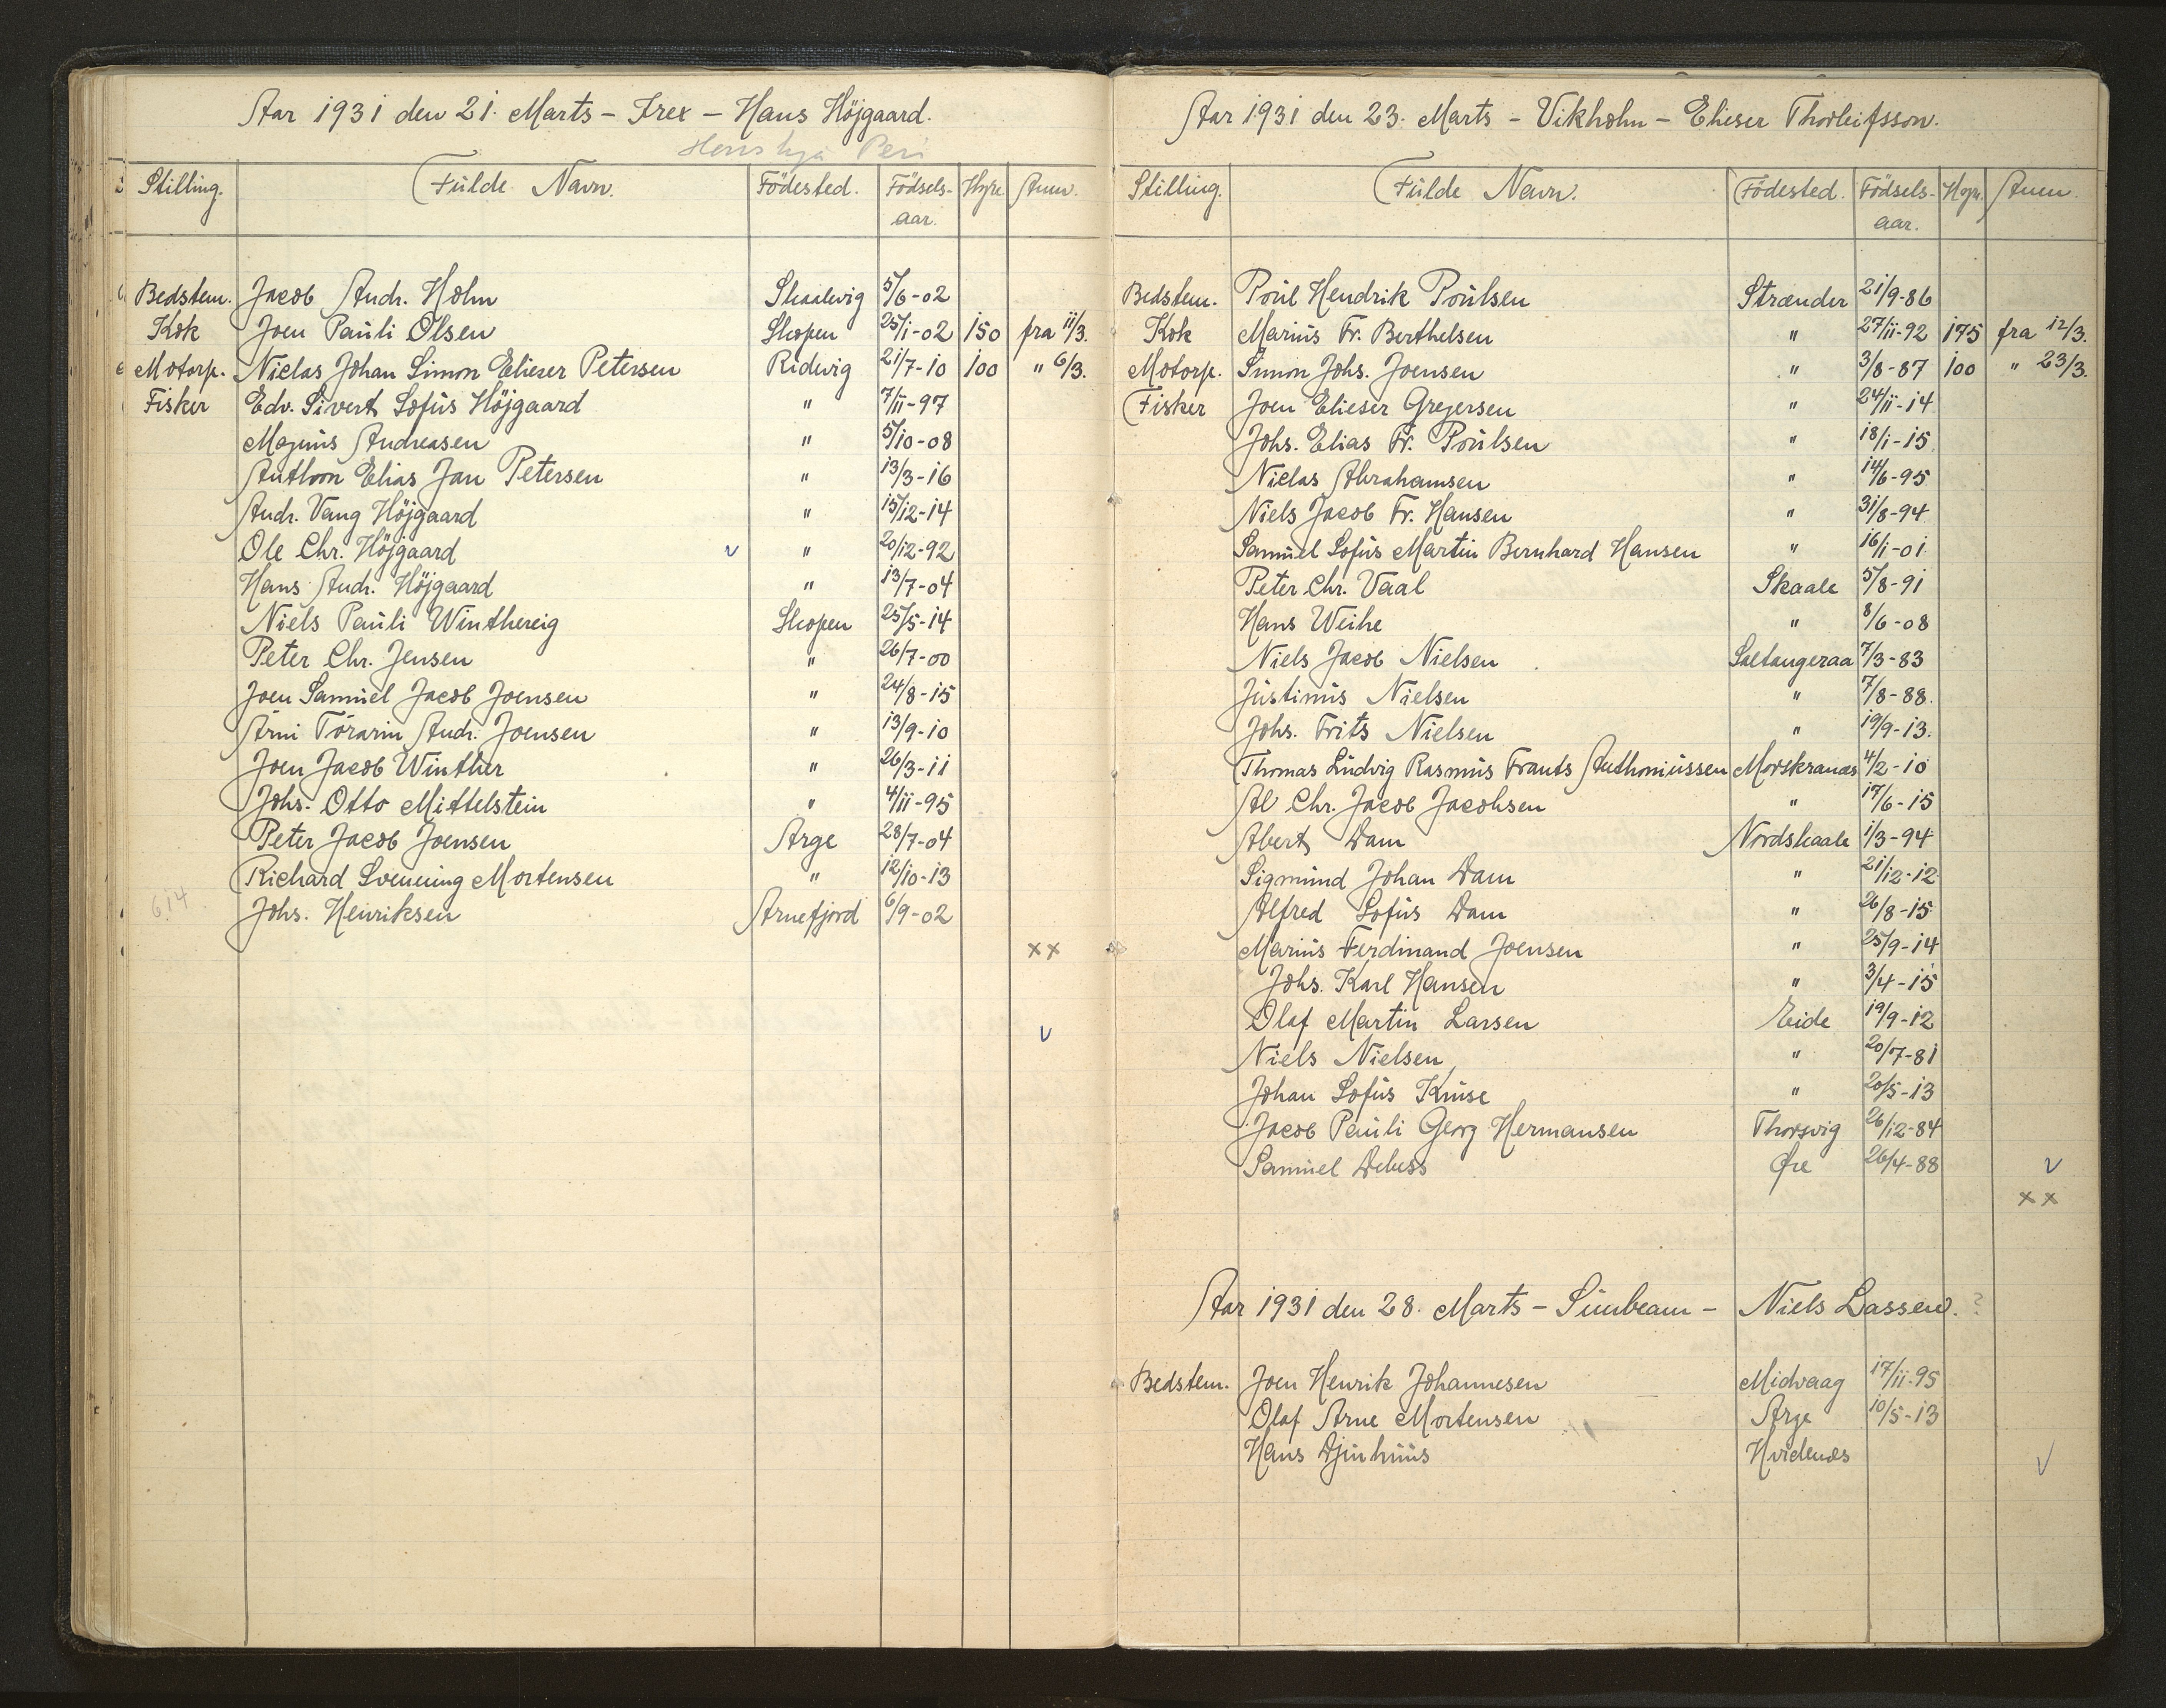 Aar 1931 den 21. Marts - Irex - Hans Höjgaard.
Stilling. Fulde Navn. Födested. Födsels- Hyre Anm.
aar.
Bedstem. Jacob Andr. Holm Skaalevig 5/6-02
Kok Joen Pauli Olsen Skopen 25/1-02 150 fra 11/3.
Motorp. Niclas Johan Simon Elieser Petersen Ridevig 21/7-10 100 " 6/3.
Fisker Edv. Sivert Sofus Höjgaard " 7/11-97
Magnus Andreasen " 5/10-08
Anthon Elias Jan Petersen " 13/3-16
Andr. Vang Höjgaard " 15/12-14
Ole Chr. Höjgaard v " 20/12-92
Hans Andr. Höjgaard " 13/7-04
Niels Pauli Winthereig Skopen 25/5-14
Peter Chr. Jensen " 26/7-00
Joen Samuel Jacob Joensen " 24/8-15
Árni Tórarin Andr. Joensen " 13/9-10
Joen Jacob Winther " 26/3-11
Johs. Otto Mittelstein " 4/11-95
Peter Jacob Joensen Arge 28/7-04
Richard Svenning Mortensen " 12/10-13
614 Johs. Henriksen Arnefjord 6/9-02
xx
v
Aar 1931 den 23. Marts - Vikholm - Elieser Thorleifsson.
Stilling. Fulde Navn. Födested. Födsels- Hyre. Anm.
aar.
Bedstem. Poul Hendrik Poulsen Strænder 21/9-86
Kok Marius Fr. Berthelsen " 27/11-92 175 fra 12/3.
Motorp. Simon Johs. Joensen " 3/8-87 100 " 23/3.
Fisker Joen Elieser Gregersen " 24/11-14
Johs. Elias Fr. Poulsen " 18/1-15
Niclas Abrahamsen " 14/6-95
Niels Jacob Fr. Hansen " 31/8-94
Samuel Sofus Martin Bernhard Hansen " 16/1-01
Peter Chr. Vaal Skaale 5/8-91
Hans Weihe " 8/6-08
Niels Jacob Nielsen Saltangeraa 7/3-83
Justinus Nielsen " 7/8-88.
Johs. Frits Nielsen " 19/9-13.
Thomas Ludvig Rasmus Frants Anthoniussen Morskranæs 4/2-10
Al Chr. Jacob Jacobsen " 17/6-15
Abert Dam Nordskaale 1/3-94
Sigmund Johan Dam " 21/12-12
Alfred Sofus Dam " 26/8-15
Marius Ferdinand Joensen " 25/9-14
Johs. Karl Hansen " 3/4-15
Olaf Martin Larsen Eide 19/9-12
Niels Nielsen " 20/7-81
Johan Sofus Kruse " 20/5-13
Jacob Pauli Georg Hermansen Thorsvig 26/12-84
Samuel Debess Øre 26/4-88 v
xx
Aar 1931 den 28. Marts - Sunbeam - Niels Lassen. ?
Bedstem. Joen Henrik Johannesen Midvaag 17/11-95
Olaf Arne Mortensen Arge 10/5-13
Hans Djurhuus Hvidenæs v